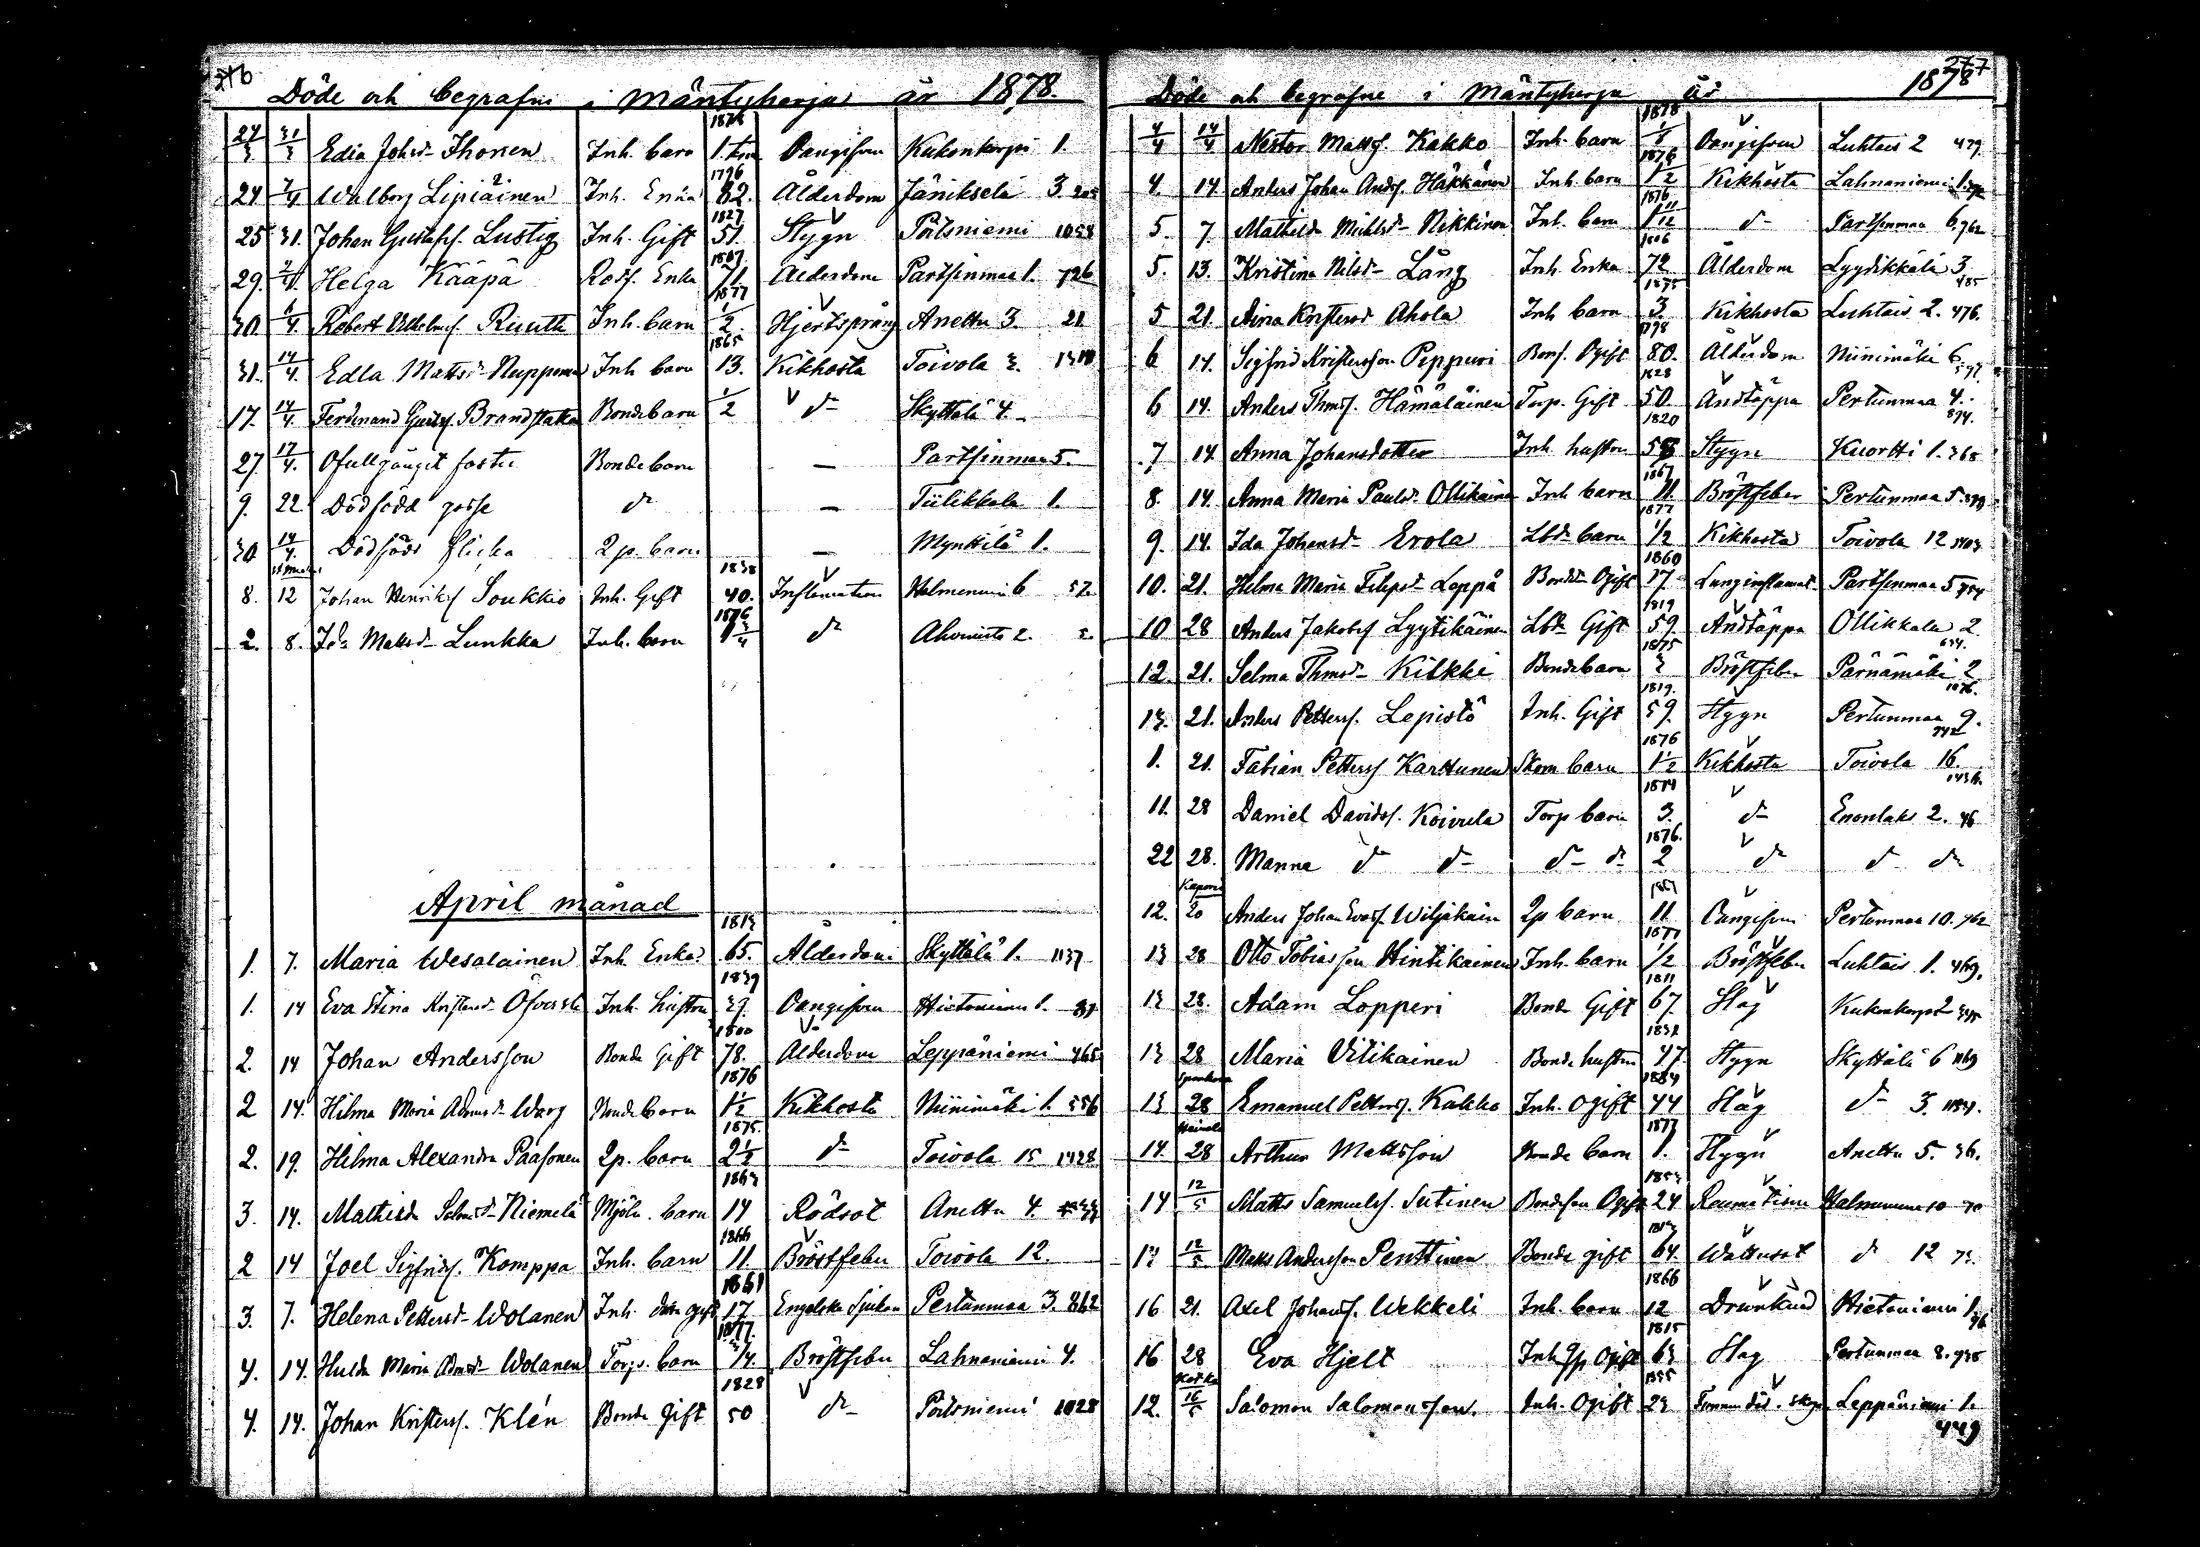 276
Döde och begrafne i Mäntyharju år 1878.
27/3 31/3 Edia Johsd- Ihonen Inh. barn 1878 1. tim Oangifven Kukonkorpi 1.
24 7/4 Walborg Lipiäinen Inh. Enka 1796 82. Ålderdom Jäniksela 3.
25 31. Johan Gustafss. Lustig Inh. Gift 1827 51. Stygn Pötsniemi 1058
29. Helga Kääpä Enka 1807 71 Ålderdom Partsinmaa 1. 726
30. /4. Robert Vilhelmss. Ruuth Inh. barn 1877 1/2. Hjertsprång Anettu 3. 21
31. 14/4. Edla Mattsd- Nupponen Inh. barn 1865 13. Kikhosta Toivola 2.
17. 14/4. Ferdinand Gustss. Brandstaka Bondebarn 1/2 d- Skyttälä 4.
27. 17/4. Ofullgånget foster Bondebarn — Partsinmaa 5.
9. 22. Dödfödd gosse d- — Tiilikkala 1.
30 14/4. Dödfödd flicka 2p. barn — Mynttilä 1.
8. 12 Johan Henrikss Soukkio Inh. Gift 1838 40. Inflamation Halmeniemi 6 52
2. 8. Ida Mattsd- Lunkka Inh. barn 1876 1 3/4 d- Ahvenisto 2. 2.
April månad
1. 7. Maria Wesalainen Inh. Enka 1813 65. Ålderdom Skyttälä 1. 1137
1. 14 Eva Stina Kristersd- Öfversti Inh. hustru 1839 39. Oangifven Hietaniemi 1. 81
2. 14 Johan Andersson Bonde Gift 1800 78. Ålderdom Leppäniemi 465
2 14. Hilma Maria Adamsd- Warg Bonde barn 1876 1 1/2 Kikhosta Niinimäki 1. 556
2. 19. Hilma Alexandra Paasonen 2p. barn 1875. 2 1/2 d- Toivola 15 1428
3. 14. Mathilda Salomsd- Niemelä Mjöln. barn 1863 14 Rödsot Anettu 4.
2 14 Joel Sigfridss. Komppa Inh. barn 1866 11. Bröstfeber Toivola 12.
3. 7. Helena Pettersd- Wolanen Inh. dotr ogift 1861 17. Engelska Sjukan Pertunmaa 3. 862
4. 14. Hulda Maria Adamsd- Wolanen Torp. barn 1877. 3/4. Bröstfeber Lahnaniemi 4.
4. 14. Johan Kristerss. Klén Bonde Gift 1828 50 d- Pötsniemi 1028
277
Döde och begrafne i Mäntyharju år 1878
4/4 14/4 Nestor Mattss. Kakko Inh. barn 1878 Oangifven Luhtais 2 479.
4. 14 Anders Johan Andss. Häkkänen Inh. barn 1876 1 1/2 Kikhosta Lahnaniemi 1.
5. 7. Mathilda Mikelsd- Nikkinen Inh. barn 1876 1 11/12 d- Partsinmaa 6. 762
5. 13. Kristina Nilsd- Lång Inh. Enka 1806 72 Ålderdom Lyydikkälä 3. 485
5 21. Aina Kristersd Ahola Inh barn 1875 3. Kikhosta Luhtais 2. 476.
6 14. Sigfrid Kristersson Peppuri Bons. Ogift 1798 80. Ålderdom Niinimäki 6.
6 14. Anders Thmss. Hämäläinen Torp. Gift 1828 50 Andtäppa Pertunmaa 4. 874.
7 14. Anna Johansdotter Inh hustru 1820 58 Stygn Kuortti 1. 368
8. 14. Anna Maria Paulsd. Ollikainen Inh barn 1867 11. Bröstfeber Pertunmaa 5. 899
9. 14. Ida Johansd- Erola Lbd. barn 1877 1/2 Kikhosta Toivola 12
10. 21. Helma Maria Filipsd- Loppå Bondd- Ogift 1860 17 Lunginflamat. Partsinmaa 5 754
10 28 Anders Jakobss Lyytikäinen Lbd- Gift 1819 59. Andtäppa Ollikkala 2
12. 21. Selma Thmsd- Kilkki Bondebarn 1875 3 Bröstfeber Pärnämäki 2
13. 21. Anders Petterss. Lepistö Inh. Gift 1819. 59. Stygn Pertunmaa 9. 942
1. 21. Fabian Petterss Karttunen Skom barn 1876 1 1/2 Kikhosta Toivola 16.
11. 28 Daniel Davidss. Koivula Torp barn 1874 3. d- Enonlaks 2. 46
22 28. Manne d d- d- d- 1876. 2 d d d-
12. 20 Anders Johan Evass. Wiljakain 2p barn 11 Oangifven Pertunmaa 10. 962
13 28 Otto Tobiasson Hintikainen Inh barn 1877 1/2 Bröstfeber Luhtais 1. 469.
13 28. Adam Lopperi Bonde Gift 1811 67. Slag Kukonkorpi 2 345
13 28 Maria Vitikainen Bonde hustru 1831 47. Stygn Skyttälä 6 1169
13 28 Emanuel Petterss. Kakko Inh. Ogift 1834 44 Slag d- 3.
14. 28 Arthur Mattsson Bonde barn 1877 1. Stygn Anettu 5. 36.
14 12/5 Matts Samuelss. Sutinen Bondeson Ogift 24 Reumatism Halmeniemi 10 70
12/5 Matts Andersson Penttinen Bonde gift 64. Wattusot d 12 73.
16 21. Axel Johanss. Wekkeli Inh. barn 1866 12 Drunknad Hietaniemi 1.
16 28 Eva Hjelt Inh Ogift 1815 63 Slag Pertunmaa 8. 938
12. 16/5 Salomon Salomonsson. Inh. Ogift 1855 23 Funnen död i skog Leppäniemi 1. 449